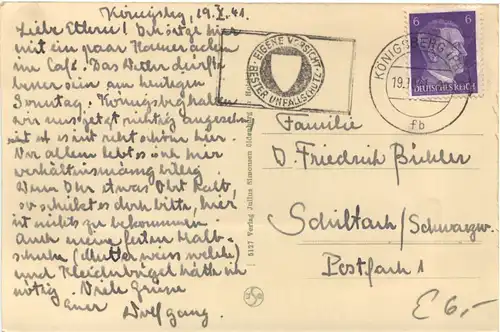 Königsbg, 19.X.41.
Liebe Eltern! Ich sitze hier
mit ein paar Kameraden
im Café. Das Wetter dürfte
besser sein am heutigen
Sonntag. Königsbg haben
wir uns jetzt richtig angesehen
und es ist recht schön hier.
Vor allem lebt es sich hier
verhältnismässig billig.
Wenn Ihr etwas Obst habt,
so schickt es doch bitte, hier
ist nichts zu bekommen.
Auch meine festen Halb-
schuhe (Mutter weiss welche)
und Kleiderbügel hätte ich
nötig. Viele Grüsse
Euer Wolfgang.
EIGENE VORSICHT
BESTER UNFALLSCHUTZ
KÖNIGSBERG (PR)
19.
fb
6 6
DEUTSCHES REICH
5127 Verlag Julius Simonsen Oldenburg
Familie
D. Friedrich Bühler
Schiltach/Schwarzw.
Postfach 1
€ 6,-